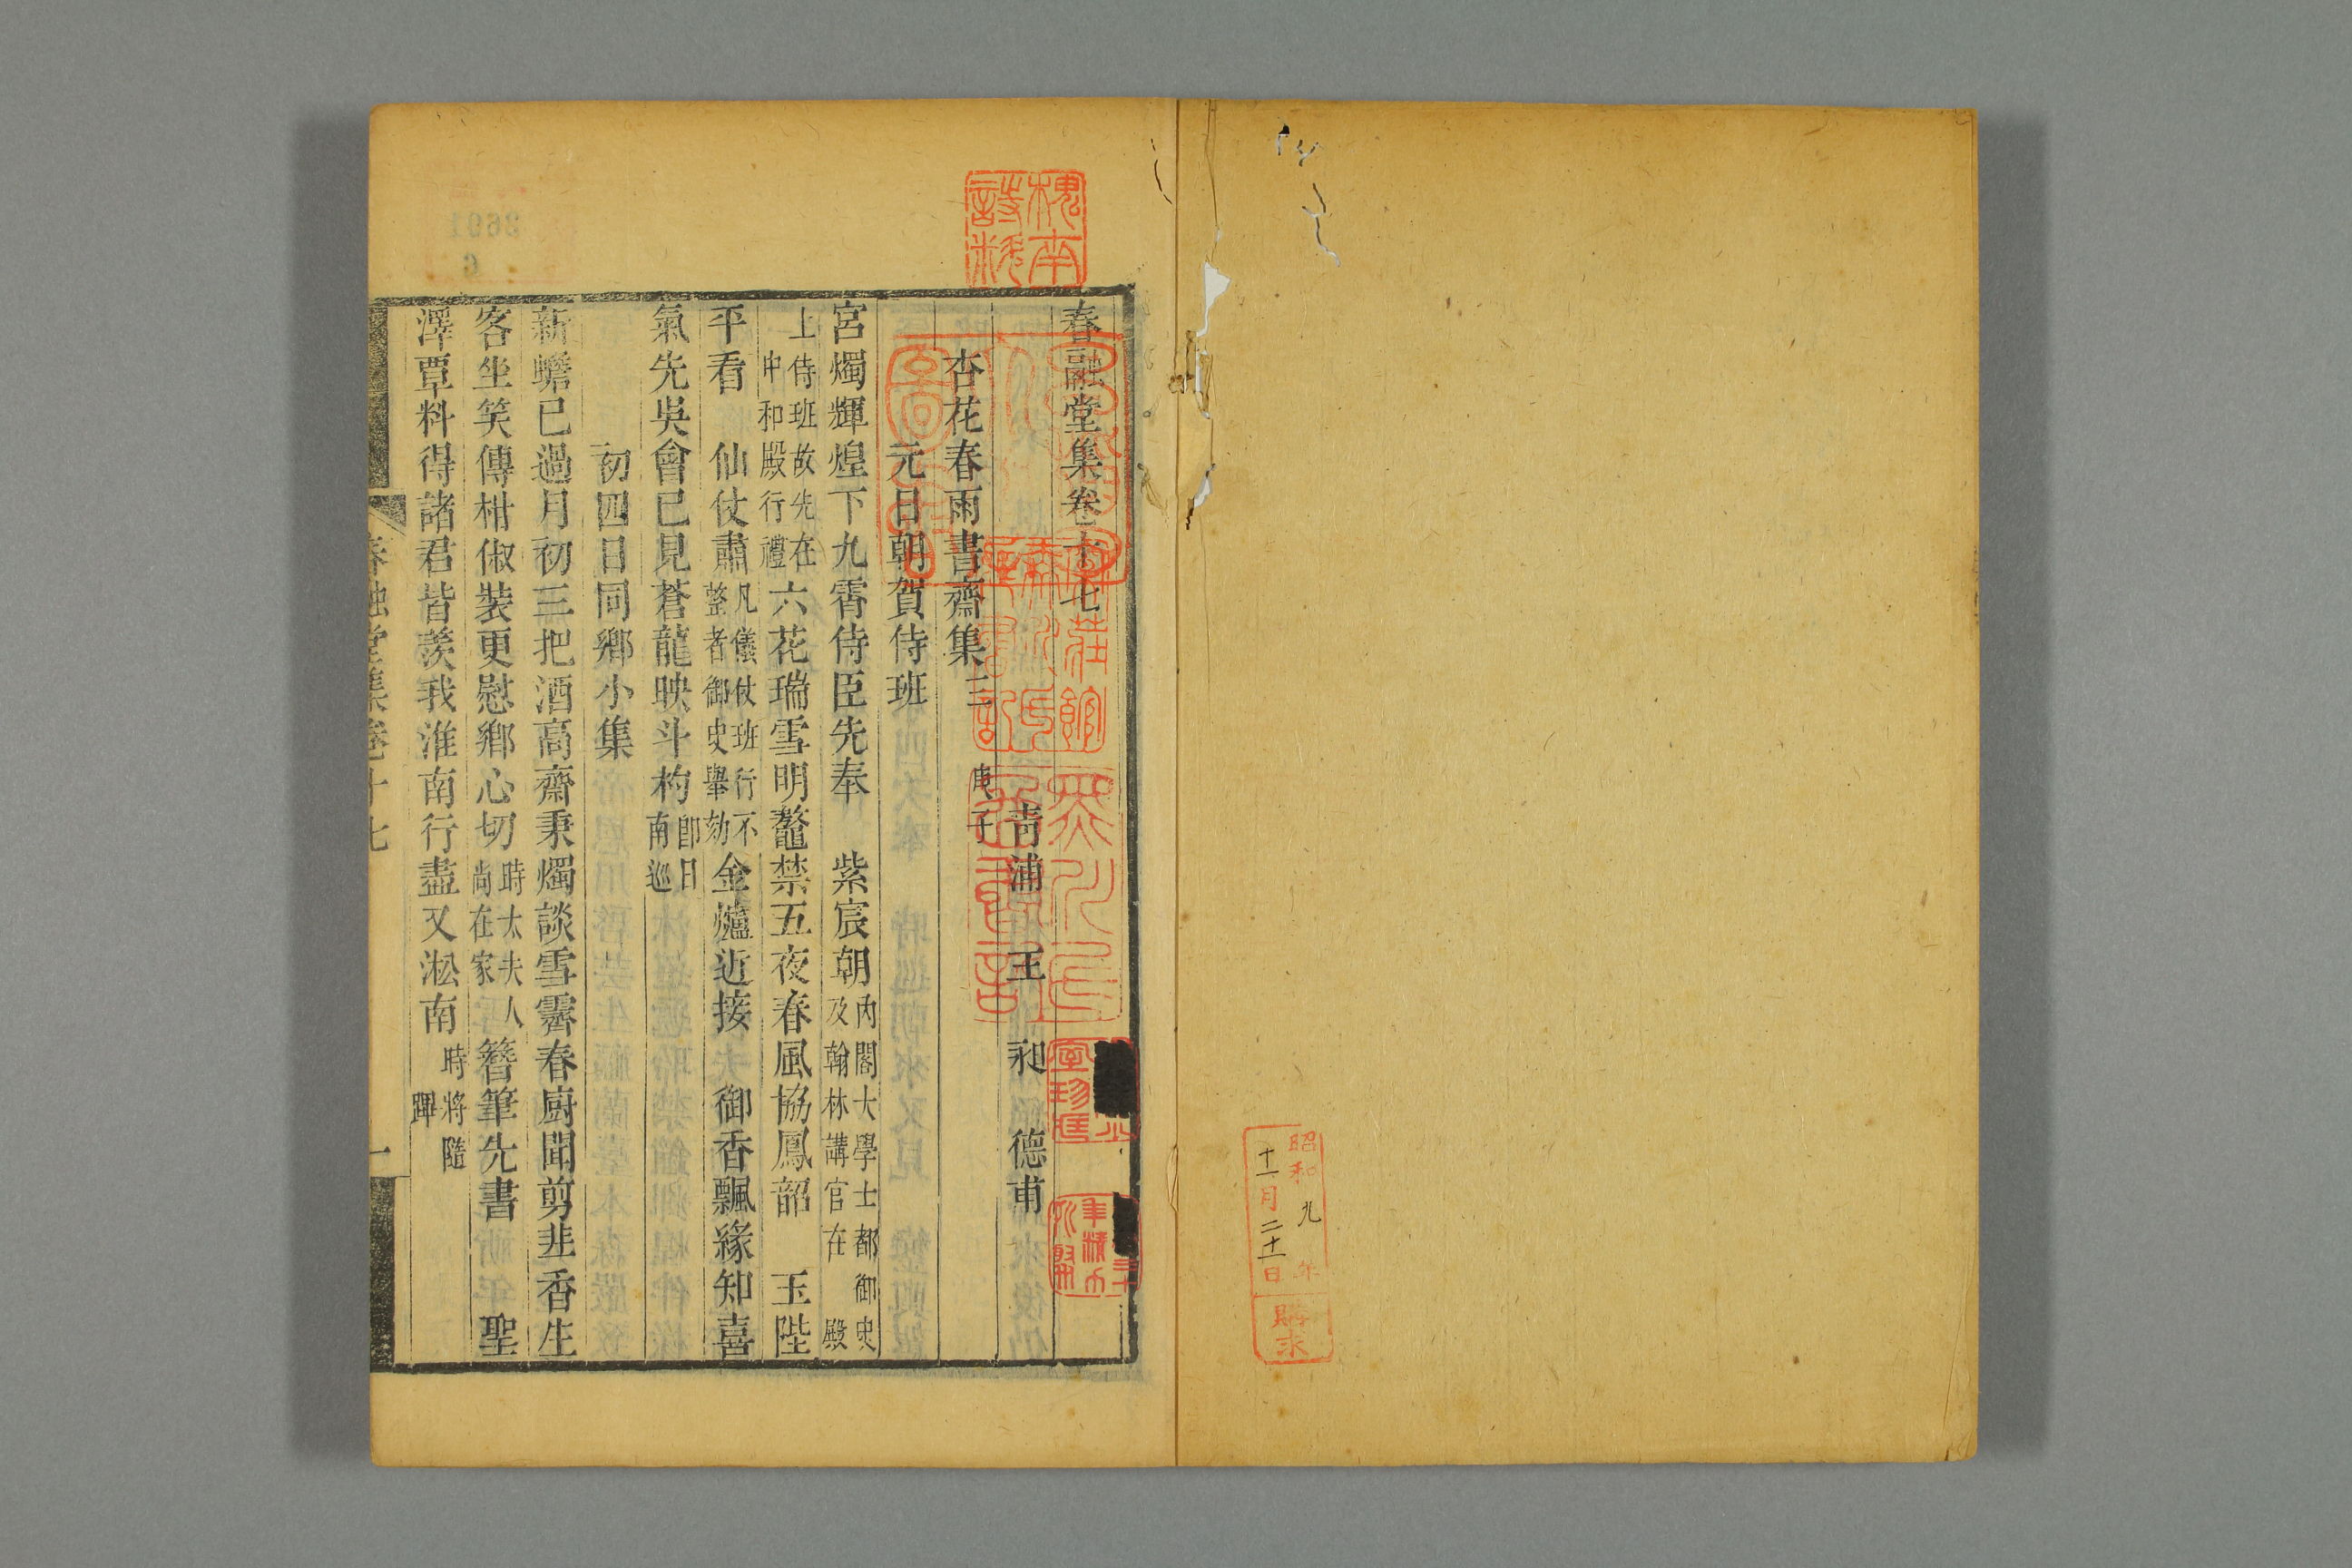 昭和九年
十一月二十一日
購求
槐南詩料
春融堂集卷十七
青浦 王 昶 德甫
杏花春雨書齋集三 庚子
元日朝賀侍班
宮燭輝煌下九霄侍臣先奉 紫宸朝內閣大學士都御史及翰林講官在 殿
上侍班故先在中和殿行禮六花瑞雪明鼇禁五夜春風協鳳韶 玉陛
平看 仙仗肅凡儀仗班行不整者御史舉劾金爐近接 御香飄緣知喜
氣先吳會已見蒼龍映斗杓卽日南巡
初四日同鄉小集
新蟾已過月初三把酒高齋秉燭談雪霽春廚聞剪韭香生
客坐笑傳柑俶裝更慰鄉心切時太夫人尚在家簪筆先書 聖
澤覃料得諸君皆羨我淮南行盡又淞南時將隨蹕
春融堂集卷十七
一